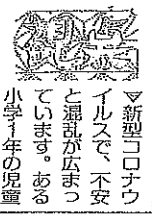 ▽新型コロナウ
イルスで、不安
と混乱が広まっ
ています。ある
小学1年の児童